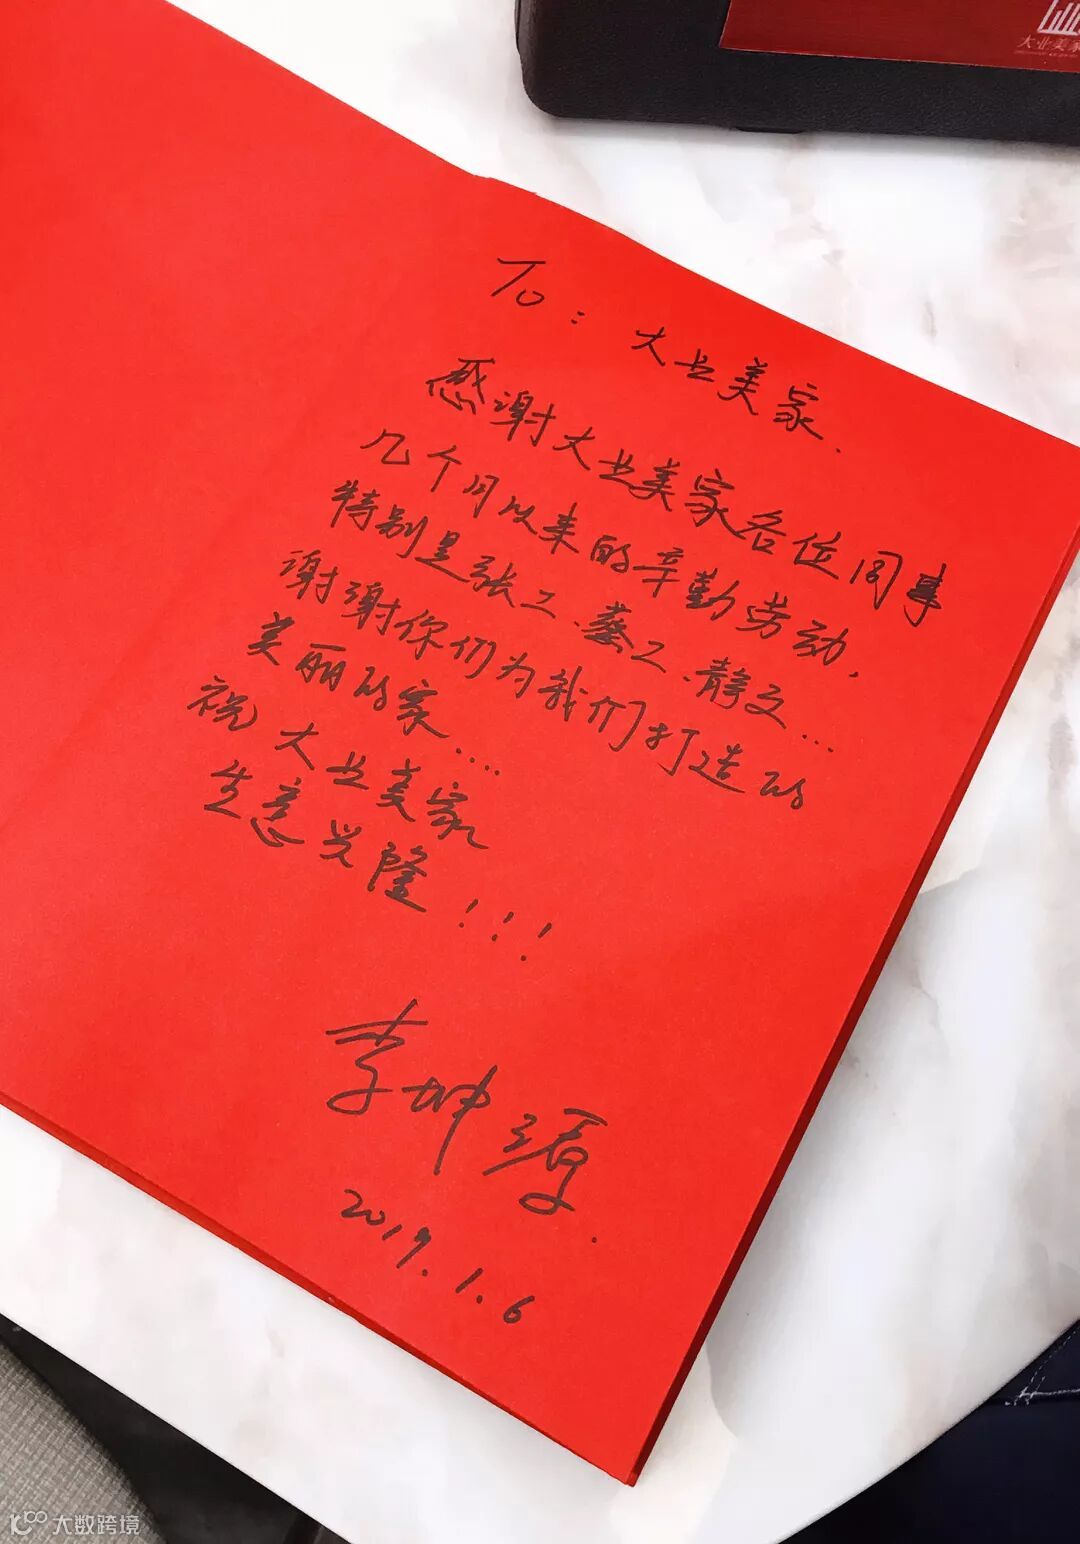 大业美家
To：大业美家.
感谢大业美家各位同事
几个月以来的辛勤劳动,
特别是张工、蔡工、静文...
谢谢你们为我们打造的
美丽的家....
祝大业美家
生意兴隆!!!
李坤源.
2019.1.6
大数跨境